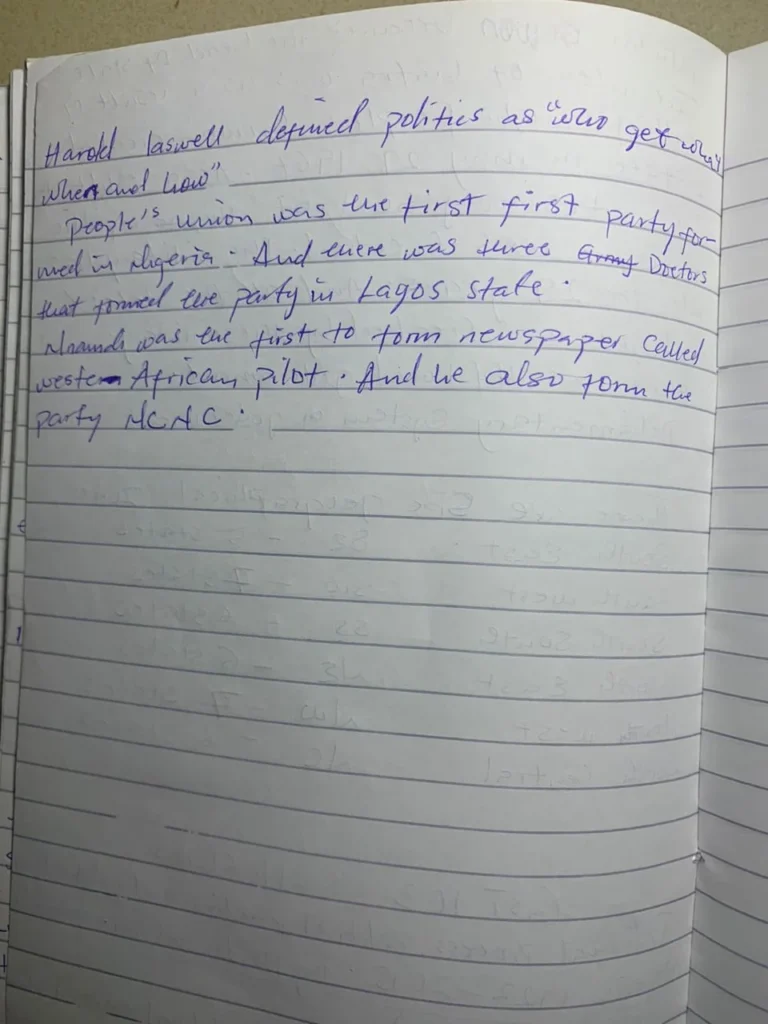 Harold laswell defined politics as "who get what
when and how"
People's union was the first first party for-
med in Nigeria. And there was three Army Doctors
that formed the party in Lagos state.
Nnamdi was the first to form newspaper called
western African pilot. And he also form the
party NCNC.